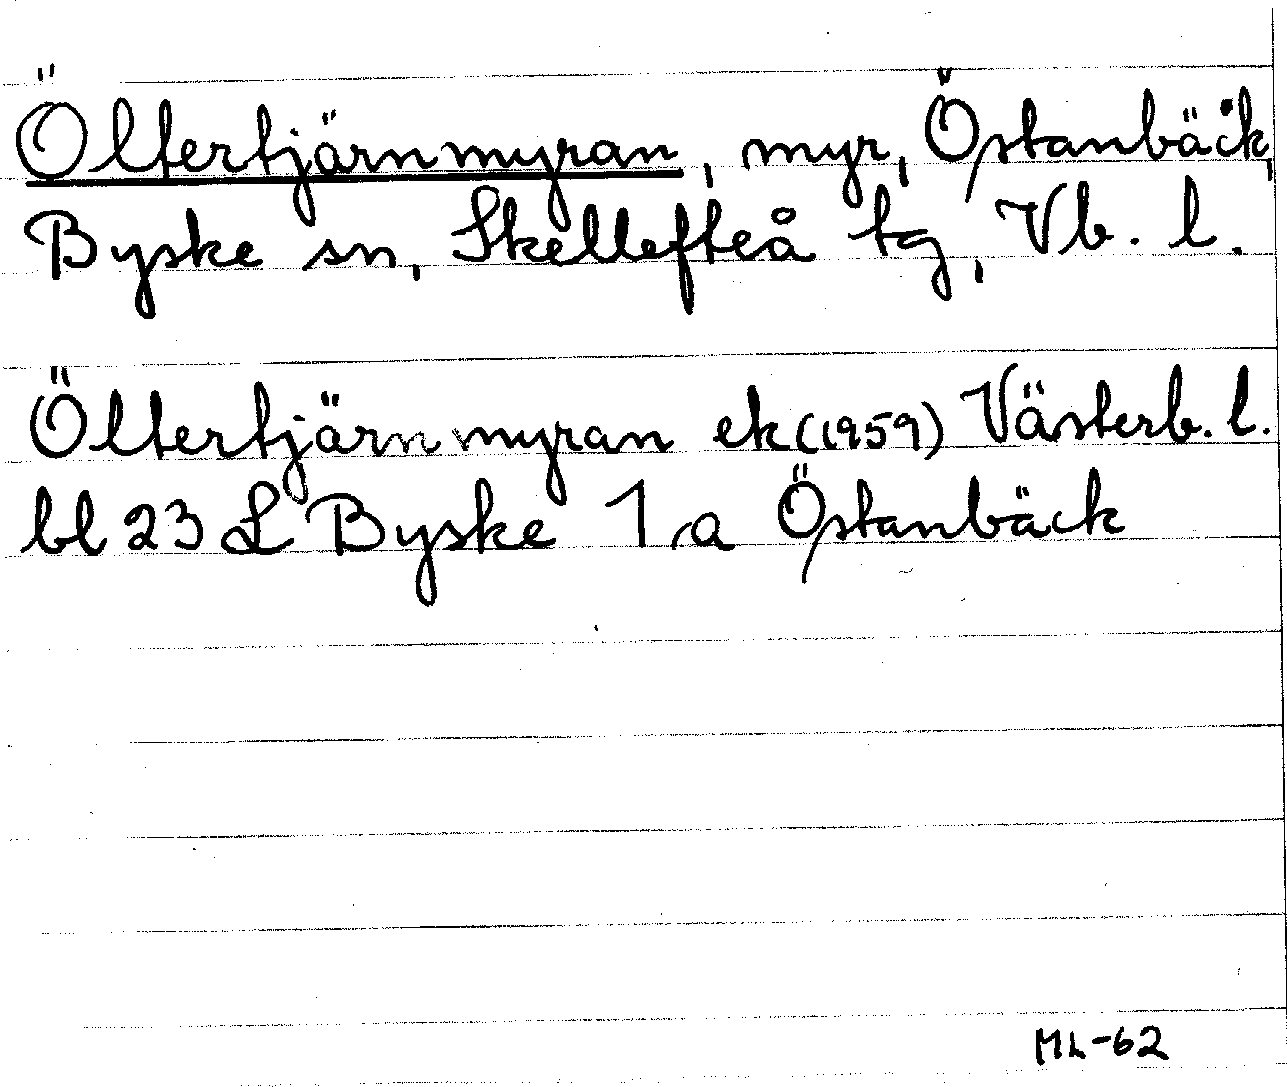 Öltertjärnmyran, myr, Östanbäck,
Byske sn, Skellefteå tg, Vb. l.
Öltertjärnmyran ek (1959) Västerb. l.
bl 23 L Byske 1 a Östanbäck
ML-62